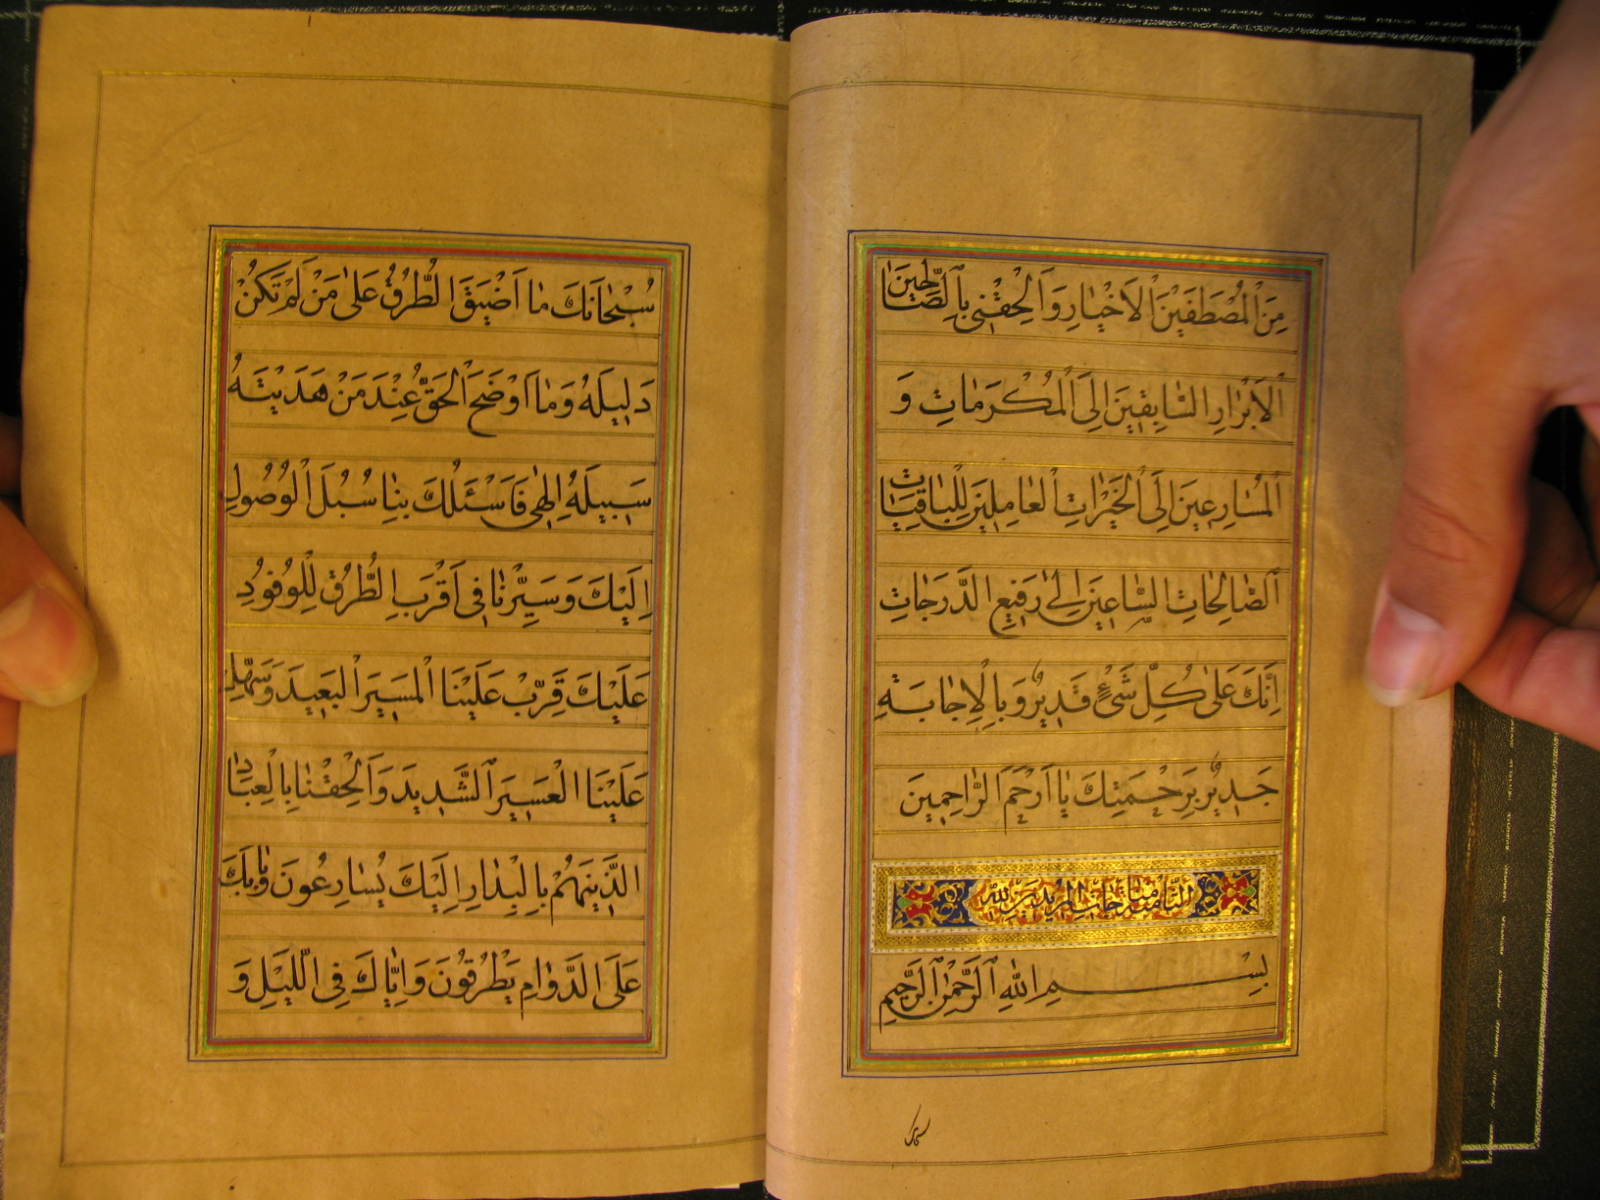 مِنَ الْمُصْطَفَيْنَ الْاَخْيٰارِ وَاَلْحِقْنى بِالصّٰالِحينَ
الْاَبْرٰارِ السّٰابِقينَ اِلَى الْمَكْرُمٰاتِ وَ
الْمُسٰارِعينَ اِلَى الْخَيْرٰاتِ الْعٰامِلينَ لِلْبٰاقِيٰاتِ
الصّٰالِحٰاتِ السّٰاعينَ اِلىٰ رَفيعِ الدَّرَجٰاتِ
اِنَّكَ عَلىٰ كُلِّ شَىْءٍ قَديرٌ وَبِالْاِجٰابَةِ
جَديرٌ بِرَحْمَتِكَ يٰا اَرْحَمَ الرّٰاحِمينَ
الثامنة مناجات المريدين لله
بِسْمِ اللّٰهِ الرَّحْمٰنِ الرَّحيمِ
سبحانك
سُبْحٰانَكَ مٰا اَضْيَقَ الطُّرُقَ عَلىٰ مَنْ لَمْ تَكُنْ
دَليلَهُ وَمٰا اَوْضَحَ الْحَقَّ عِنْدَ مَنْ هَدَيْتَهُ
سَبيلَهُ اِلٰهى فَاَسْئَلُكَ بِنٰا سُبُلَ الْوُصُولِ
اِلَيْكَ وَسَيِّرْنٰا فى اَقْرَبِ الطُّرُقِ لِلْوُفُودِ
عَلَيْكَ قَرِّبْ عَلَيْنَا الْمَسيرَ الْبَعيدَ وَسَهِّلْ
عَلَيْنَا الْعَسيرَ الشَّديدَ وَاَلْحِقْنٰا بِالْعِبٰادِ
الَّذينَهُمْ بِالْبِدٰارِ اِلَيْكَ يُسٰارِعُونَ وَبٰابَكَ
عَلَى الدَّوٰامِ يَطْرُقُونَ وَاِيّٰاكَ فِى الَّليْلِ وَ